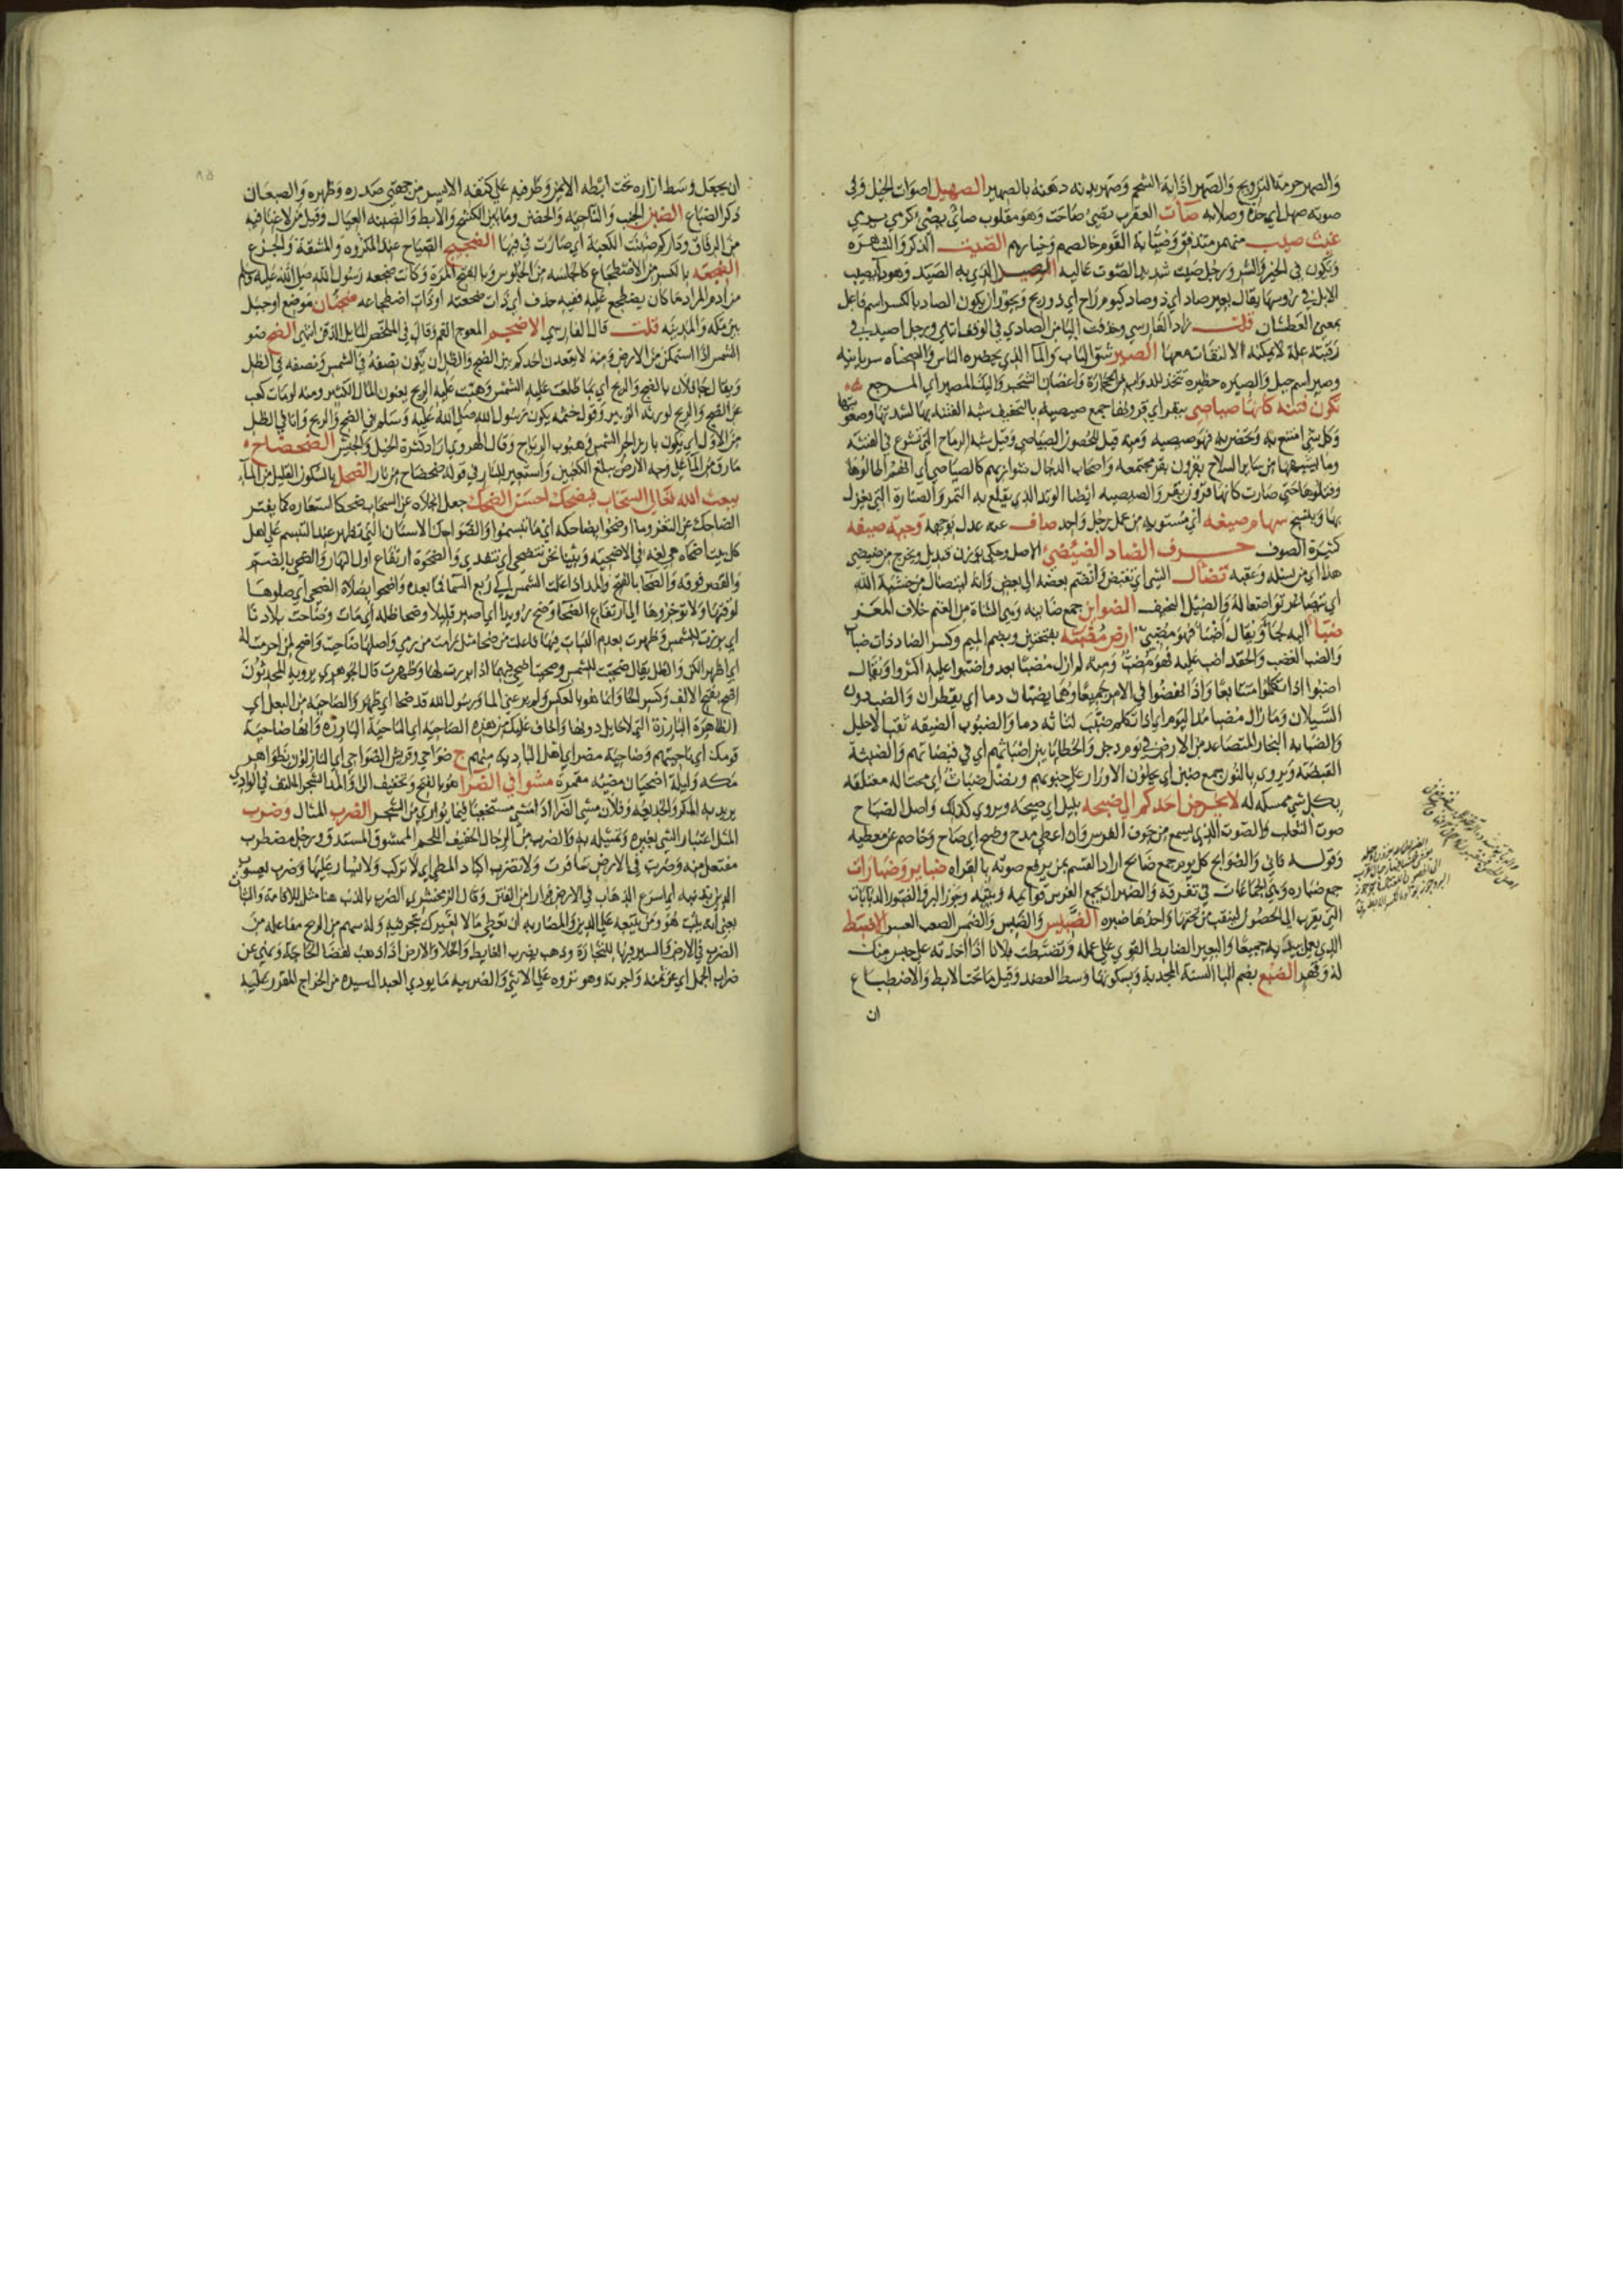 والصهر حرمة التزويج والصهر اذابة الشحم وصهر بدنه دهنه بالصهير الصهيل اصوات الخيل وفي
صوته صهل اي حدة وصلابة صأت العقرب تصئ صاحت وهو مقلوب صأى يصئى كرمى يرمي
غيث صيب منهمر متدفق وصيابة القوم خالصهم وخيارهم الصيت الذكر والشهرة
ويكون في الخير والشر ورجل صيت شديد الصوت عاليه الذي به الصيد وهو داء يصيب
الابل في رؤسها يقال بعير صاد اي ذو صاد كيوم راح اي ذو ريح ويجوز ان يكون الصاد بالكسر اسم فاعل
بمعنى العطشان قلت زاد الفارسي وحذفت الياء من الصادي في الوقف انتهى ورجل اصيد في
رقبته علة لا يمكنه الالتفات معها الصير شق الباب والماء الذي يحضره الناس والصحناه سريانية
وصير اسم جبل والصيره حظيرة تتخذ للدواب من الحجارة واغصان الشجر واليك المصير اي المرجع
تكون فتنة كانها صياصي بقر اي قرونها جمع صيصية بالتخفيف شبه الفتنة بها لشدتها وصعوبتها
وكل شئ امتنع به وتحصن به فهو صيصيه ومنه قيل للحصون الصياصي وقيل شبه الرماح التي تشرع في الفتنة
وما يشبهها من سائر السلاح بقرون بقر مجتمعة واصحاب الدجال شواربهم كالصياصي اي انهم اطالوها
وفتلوها حتى صارت كانها قرون بقر والصيصيه ايضا الوتد الذي يقلع به التمر والصنارة التي يغزل
بها وينسج سهام صيغه اي مستوية من عمل رجل واحد صاف عنه عدل بوجهه وجبة صيفه
كثيرة الصوف حرف الضاد الضئضئ الاصل وحكي بوزن قنديل ويخرج من ضئضئ
هذا اي من نسله وعقبه تضأل الشئ اي تقبض وانضم بعضه الى بعض وانه ليتضأل من خشية الله
اي يتصاغر تواضعا له والضئيل النحيف الضوائن جمع ضائنة وهي الشاة من الغنم خلاف المعز
ضبأ اليه لجأ ويقال اضبأ فهو مضبئ ارض مضبة بفتحتين وبضم الميم وكسر الضاد ذات ضباب
والضب الغضب والحقد اضب عليه فهو مضب ومنه لم ازل مضبا بعد واضبوا عليه اكثروا ويقال
اضبوا اذا تكلموا متتابعا واذا نهضوا في الامر جميعا وهما يضبان دما اي يقطران والضب دون
السيلان وما زال مضبا مذ اليوم اي اذا تكلم ضبت لثاته دما والضبوب الضيقة ثقب الاحليل
والضبابه البخار المتصاعد من الارض في يوم دجن والخطايا بين اضباثهم اي في قبضاتهم والضبثة
القبضة ويروى بالنون جمع ضبن اي يحملون الاوزار على جنوبهم وفضل ضباث اي محتاله معتلقه
بكل شئ ممسكه له لا يخرجن احدكم الى ضبحه بليل اي صيحة ويروى كذلك واصل الضباح
صوت الثعلب والصوت الذي يسمع من جوف الفرس وان اعطي مدح وضبح اي صاح وخاصم عن معطيه
وقوله فاني والضوابح كل يوم جمع ضابح اراد القسم بمن يرفع صوته بالقراه ضبائر وضبارات
جمع ضباره وهي الجماعات في تفرقة والضبر ان يجمع الفرس قوائمه ويثب وجوز البر والضبور الدبابات
التي يقرب الى الحصون لينقب من تحتها واحدها ضبره الضبيس والضبس والضبس الصعب العسر الاضبط
الذي يعمل بيديه جميعا والبعير الضابط القوي على عمله وتضبطت فلانا اذا اخذته على حبس منك
له وقهر الضبع بضم الباء السنة المجدبة وبسكونها وسط العضد وقيل ما تحت الابط والاضطباع
ان
ان يجعل وسط ازاره تحت ابطه الايمن وطرفيه على كتفه الايسر من جهتي صدره وظهره والضبعان
ذكر الضباع الضبن الجنب والناحية والحضن وما بين الكشح والابط والضبنه العيال وقيل من لا غنا فيه
من الرفاق وداركم ضبنت الكعبة اي صارت في فيئها الضجيج الصياح عند المكروه والمشقة والجزع
الضجعه بالكسر من الاضطجاع كالجلسه من الجلوس وبالفتح المرة وكانت ضجعه رسول الله صلى الله عليه وسلم
من ادم المراد ما كان يضطجع عليه ففيه حذف اي ذات ضجعته او ذات اضطجاعه ضجنان موضع او جبل
بين مكه والمدينه قلت قال الفارسي الاضجم المعوج الفم وقال في الملخص المايل الذقن انتهى الضح ضو
الشمس اذا استمكن من الارض ومنه لا يقعدن احدكم بين الضح والظل ان يكون نصفه في الشمس ونصفه في الظل
ويقال جا فلان بالضح والريح اي بما طلعت عليه الشمس وهبت عليه الريح يعنون المال الكثير ومنه لو مات كعب
عن الضح والريح لورثه الزبير وقول خثمه يكون رسول الله صلى الله عليه وسلم في الضح والريح وانا في الظل
من الاول اي يكون بارزا لحر الشمس في هبوب الرياح وقال الهروي اراد كثرة الخيل والجيش الضحضاح
مارق من الماء على وجه الارض يبلغ الكعبين واستعير للنار في قوله ضحضاح من نار الضحل بالسكون القليل من الماء
يبعث الله تعالى السحاب فيضحك احسن الضحك جعل انجلاءه عن السحاب ضحكا استعاره كما يفتر
الضاحك عن الثغر وما اوضحوا بضاحكه اي ما تبسموا والضواحك الاسنان التي تظهر عند التبسم على اهل
كل بيت اضحاه هي لغه في الاضحيه وبينا نحن نتضحى اي نتغدى والضحوة ارتفاع اول النهار والضحى بالضم
والقصر فوقه والضحا بالفتح والمد اذا علت الشمس الى ربع السما فما بعده واضحوا بصلاة الضحى اي صلوها
لوقتها ولا تؤخروها الى ارتفاع الضحا وضح رويدا اي اصبر قليلا وضحا ظله اي مات وضاحت بلادنا
اي برزت للشمس وظهرت بعدم النبات فيها فاعلت من ضحا مثل رامت من رمي واصلها ضاحيت واضح لمن احرمت له
اي اظهر واعتزل الكن والظل يقال ضحيت للشمس وضحيت اضحى فيهما اذا برزت لها وظهرت قال الجوهري يرويه المحدثون
اضح بفتح الالف وكسر الحا وانما هو بالعكس ورسول الله قد ضحا اي ظهر والضاحية من البعل اي
الظاهرة البارزة التي لا حايل دونها واخاف عليك من هذه الضاحية اي الناحية البارزة وانها ضاحية
قومك اي ناحيتهم وضاحيه مضر اي اهل البادية منهم ج ضواحي وقريش الضواحي اي النازلون بظواهر
مكه وليلة اضحيان مضيئه مقمرة مشوا في الضراء هو بالفتح وتخفيف الراء والمد الشجر الملتف في الوادي
يريد به المكر والخديعه وفلان يمشي الضراء اذا مشى مستخفيا فيما يواري من الشجر الضرب المثال وضرب
المثل اعتبار الشئ بغيره وتمثيله به والضرب من الرجال الخفيف اللحم الممشوق المستدق ورجل مضطرب
مفتعل منه وضربت في الارض سافرت ولا تضرب اكباد المطي اي لا تركب ولا يسار عليها وضرب يعسوب
الدين بذنبه اي اسرع الذهاب في الارض فرارا من الفتن وقال الزمخشري الضرب بالذنب هنا مثل للاقامة والثبات
يعني انه يثبت هو ومن يتبعه على الدين والمضاربه ان تعطي مالا لغيرك يتجر فيه وله سهم من الربح مفاعله من
الضرب في الارض والسير فيها للتجارة وذهب يضرب الغايط والخلا والارض اذا ذهب لقضا الحاجة ونهي عن
ضراب الجمل اي عن ثمنه واجرته وهو نزوه على الانثى والضريبه ما يودي العبد الى سيده من الخراج المقرر عليه